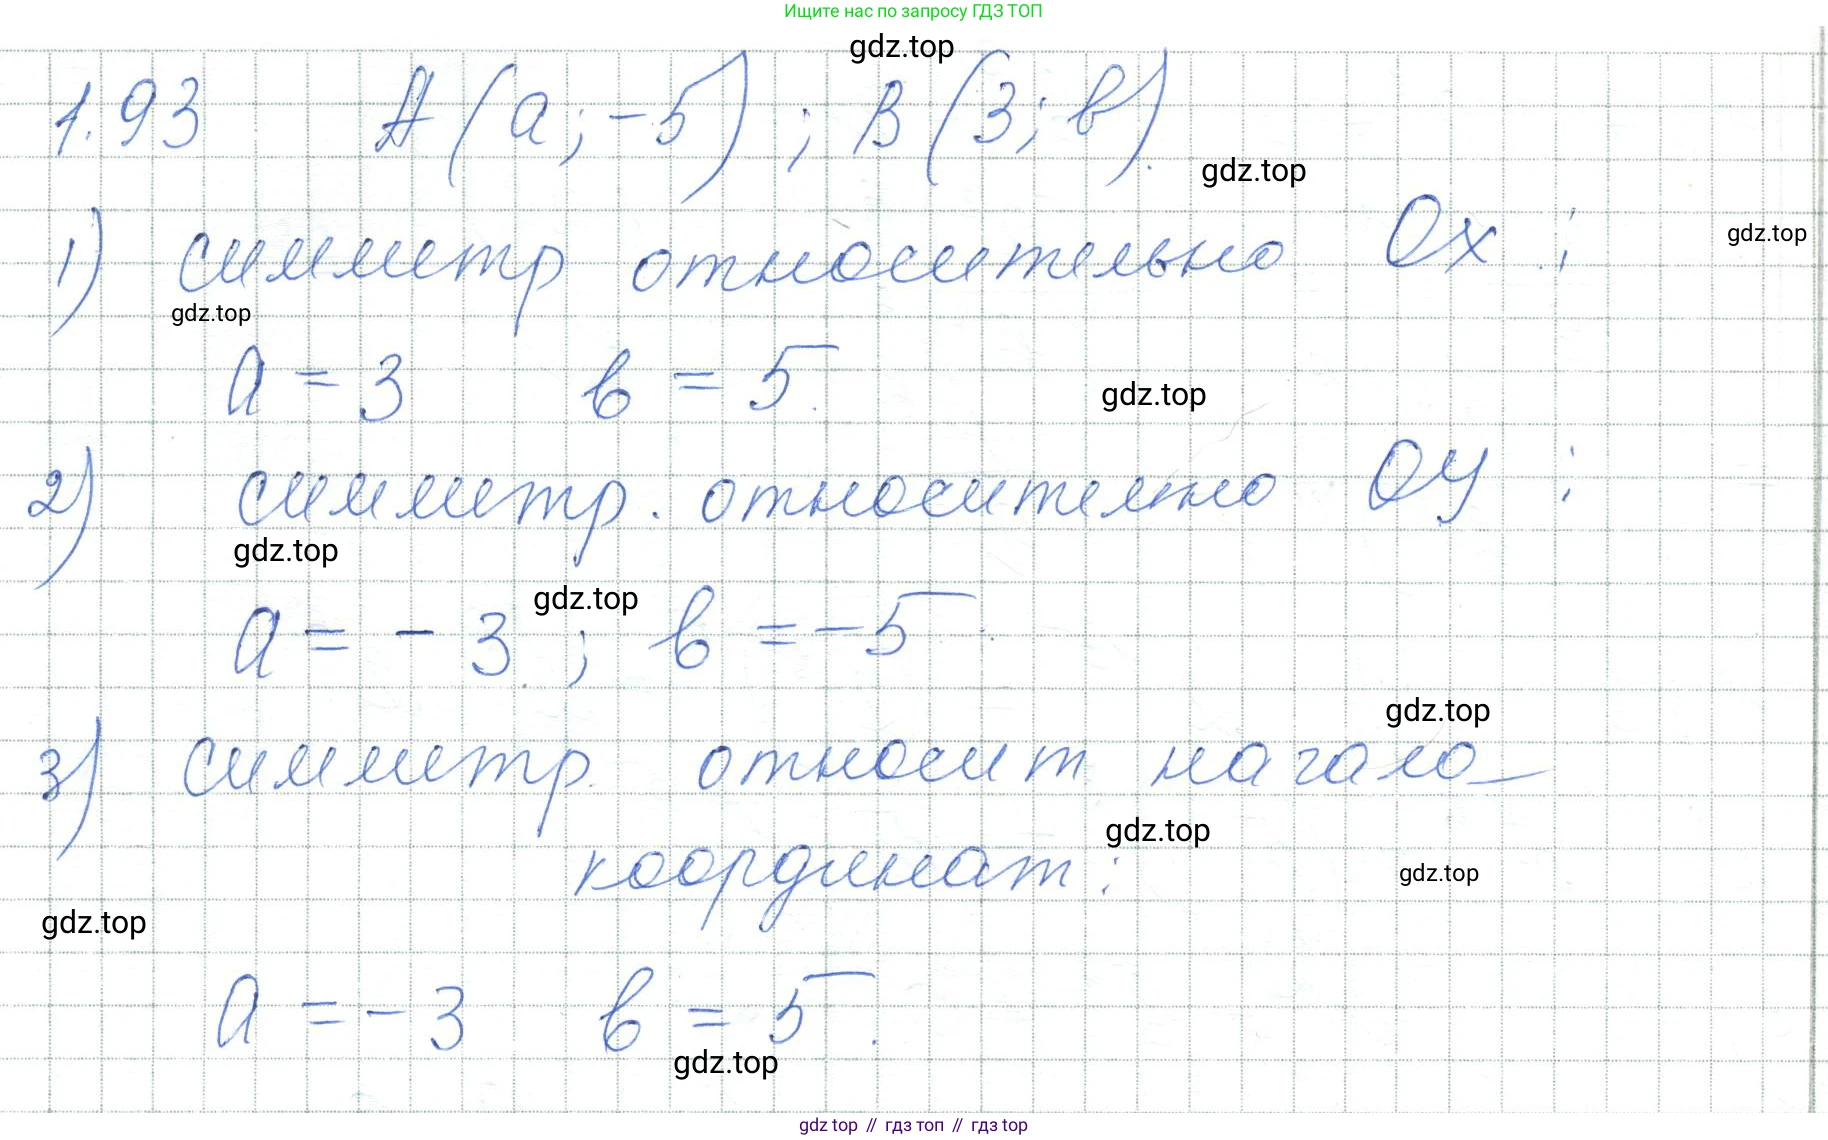 Ищите нас по запросу ГДЗ ТОП
gdz.top
1.93 A(a; -5) ; B(3; b).
gdz.top
1) симметр относительно Ox :
gdz.top
gdz.top
a = 3 b = 5.
gdz.top
2) симметр. относително OY :
gdz.top
gdz.top
a = - 3 ; b = -5.
gdz.top
3) симметр. относит начало
gdz.top
координат :
gdz.top
gdz.top
a = -3 b = 5.
gdz.top
gdz top // гдз топ // гдз top